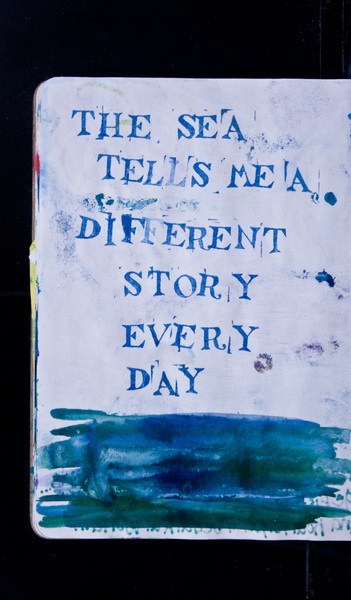 THE SEA
TELLS ME A
DIFFERENT
STORY
EVERY
DAY